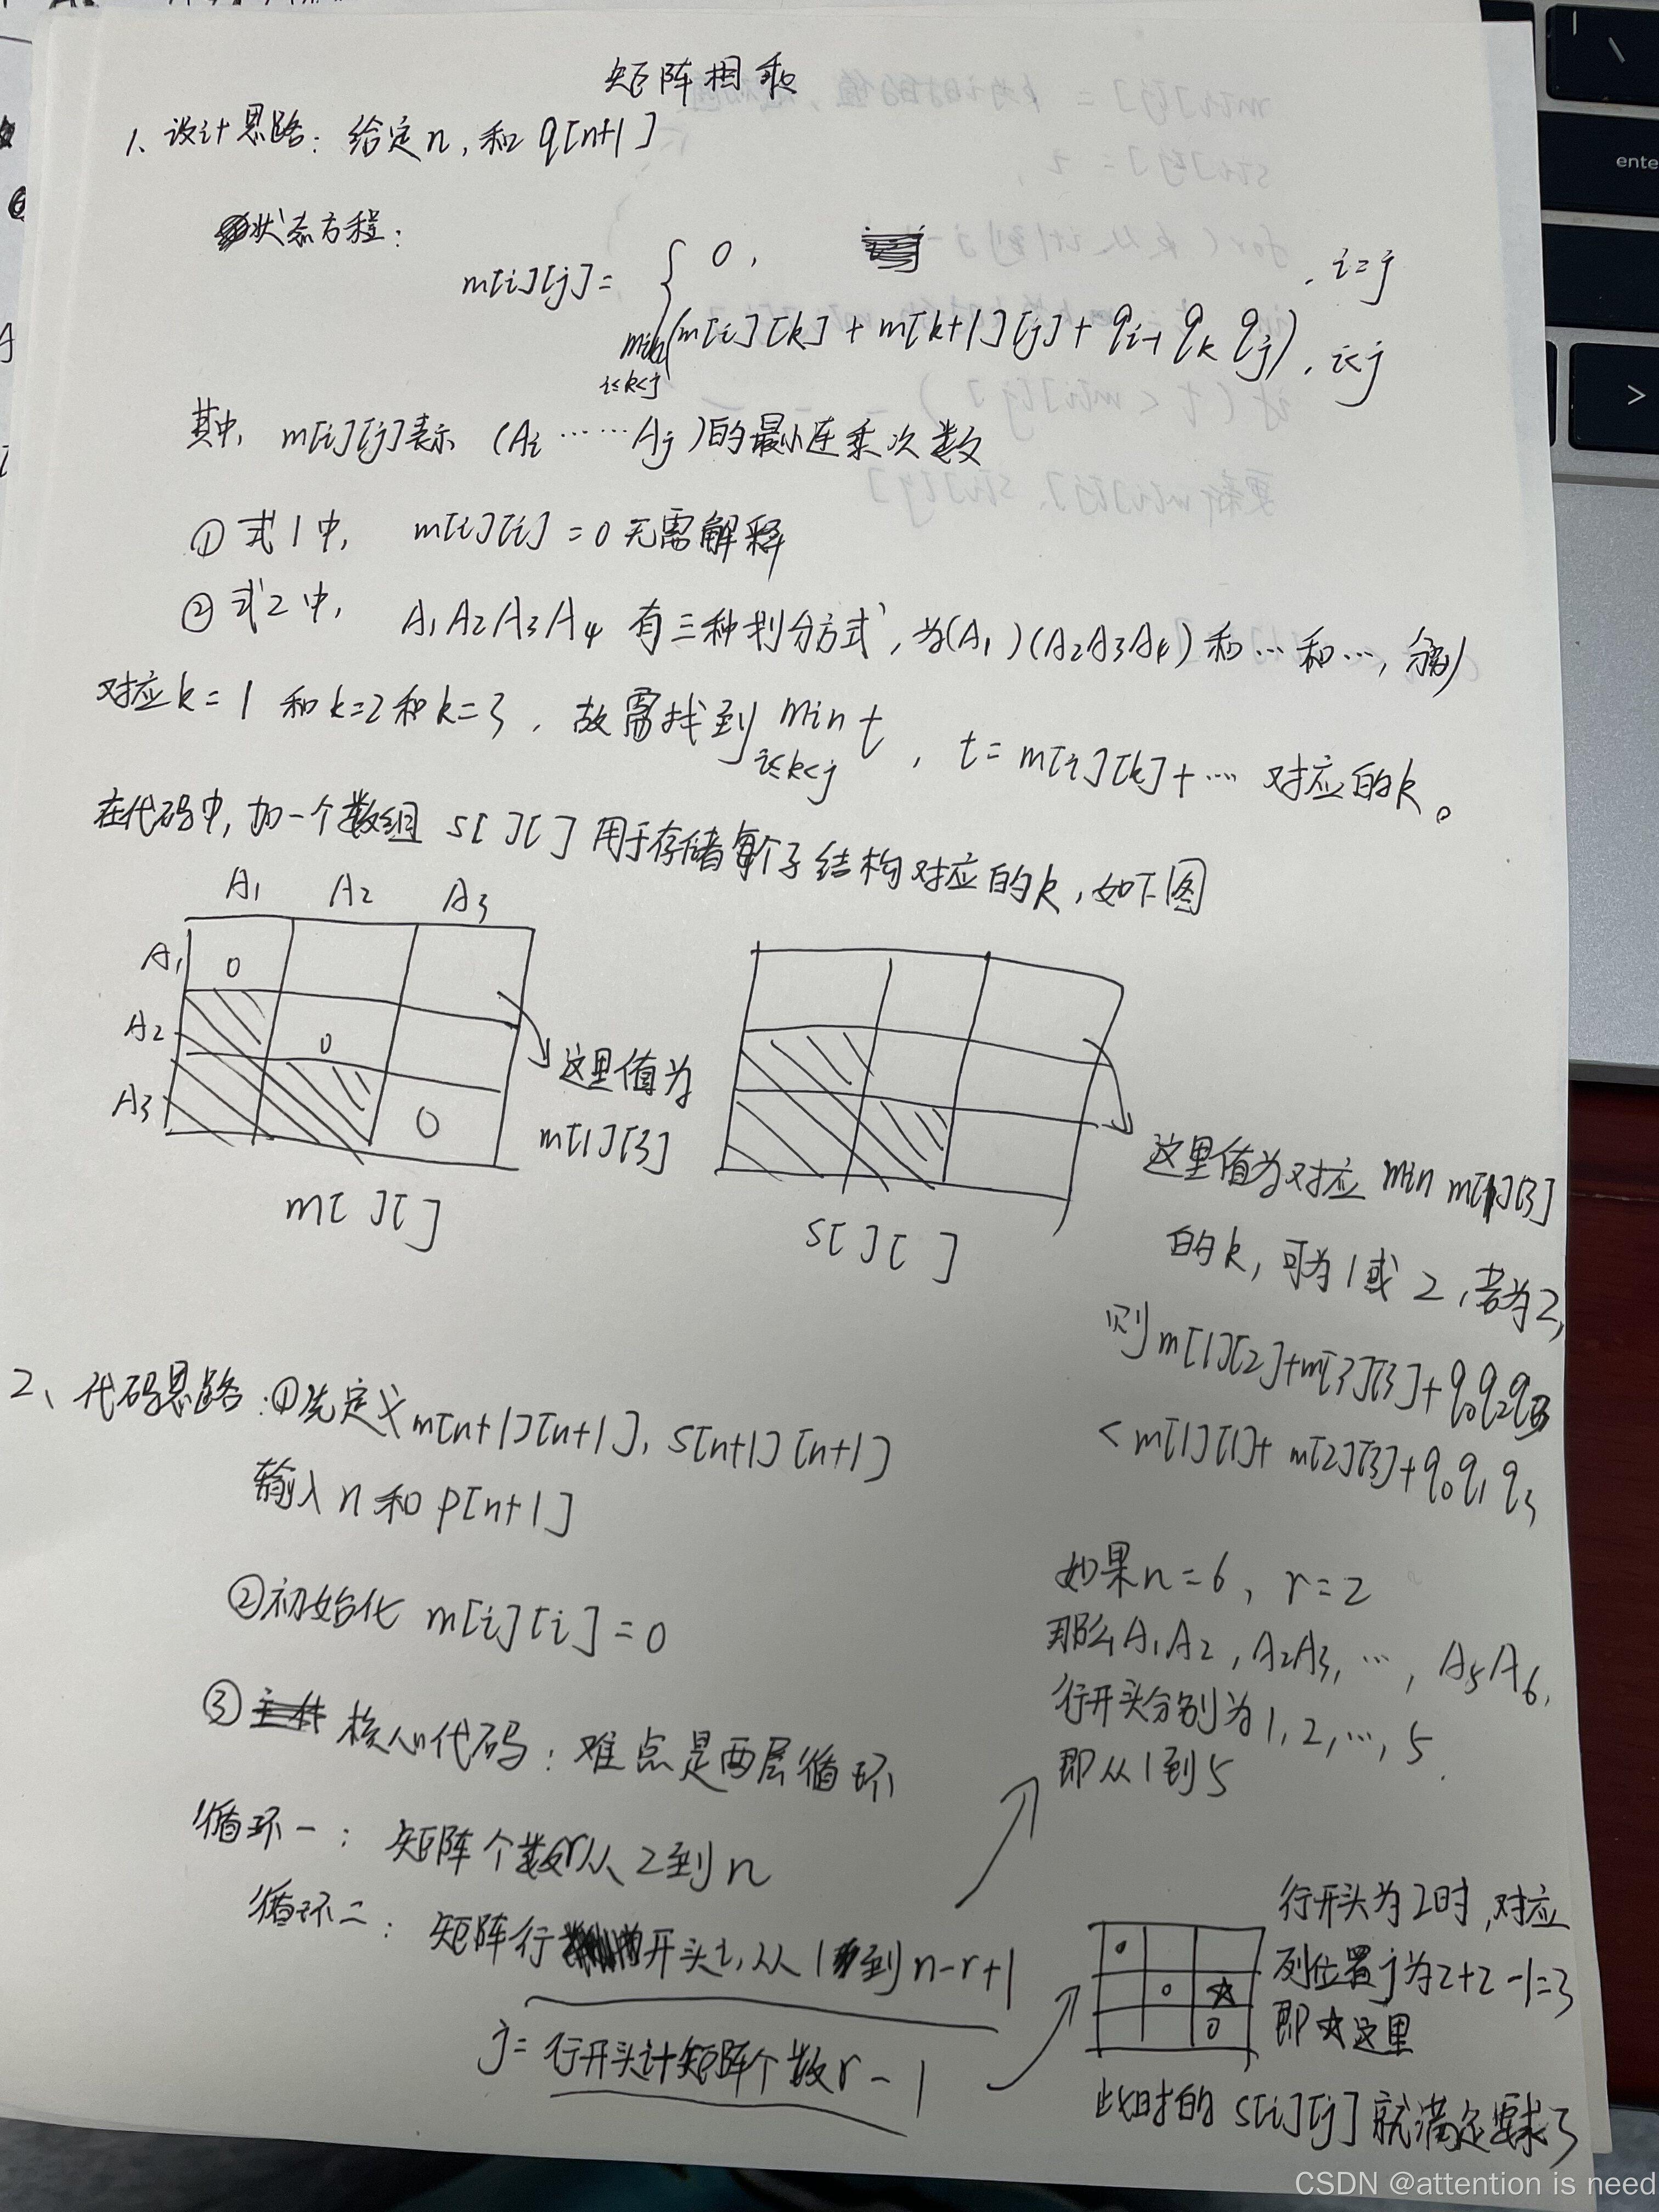 矩阵相乘
1、设计思路：给定n，和q[n+1]
状态方程：
m[i][j]= { 0, , i=j
min(m[i][k] + m[k+1][j] + qi-1 qk qj), i<j
i≤k<j
其中, m[i][j]表示 (Ai ······ Aj)的最小连乘次数
① 式1中, m[i][i]=0无需解释
② 式2中, A1A2A3A4 有三种划分方式, 为(A1)(A2A3A4) 和…和…, 分别
对应k=1 和k=2和k=3, 故需找到 min t, t= m[i][k]+… 对应的k。
i≤k<j
在代码中, 加一个数组 s[][] 用于存储每个子结构对应的k, 如下图
A1 A2 A3
A1 0
A2 0
A3 0
这里值为
m[1][3]
m[][]
s[][]
这里值为对应 min m[1][3]
的k, 可为1或2, 若为2,
则m[1][2]+m[3][3]+q0q2q3
<m[1][1]+m[2][3]+q0q1q3
2、代码思路:①先定义m[n+1][n+1], s[n+1][n+1]
输入n和p[n+1]
②初始化 m[i][i]=0
③ 核心代码: 难点是两层循环
循环一: 矩阵个数r从2到n
循环二: 矩阵行开头i, 从1到n-r+1
j= 行开头i+矩阵个数r-1
如果n=6, r=2
那么A1A2, A2A3, …, A5A6,
行开头分别为1, 2, …, 5
即从1到5.
0
0 ☆
0
行开头为2时,对应
列位置j为2+2-1=3
即☆这里
此时的s[i][j]就满足要求了
enter
>
CSDN @attention is need